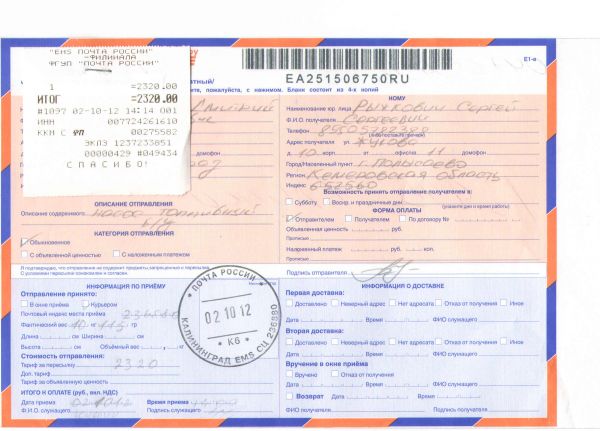 "EMS ПОЧТА РОССИИ"
-ФИЛИАЛА
ФГУП "ПОЧТА РОССИИ"
1 =2320.00
ИТОГ =2320.00
#1097 02-10-12 14:14 001
ИНН 007724261610
ККМ С ФП 00275582
ЭКЛЗ 1237233051
00000429 #049434
СПАСИБО!
EA251506750RU
E1-в
пожалуйста, с нажимом. Бланк состоит из 4-х копий
КОМУ
Наименование юр. лица Рыжкович Сергей
Ф.И.О получателя Сергеевич
Телефон
Адрес получателя ул. Жукова
д. 10 корп. офис/кв. 11 домофон
Город/Населенный пункт г. Полысаево
Регион Кемеровская область
Индекс 652560
Возможность принять отправление получателем:
Субботу Воскр. и праздничные дни (укажите дни и время работы)
ФОРМА ОПЛАТЫ
Отправителем Получателем По договору №
Объявленная ценность руб.
(прописью)
Наложенный платеж руб. коп.
(прописью)
Подпись отправителя
ОПИСАНИЕ ОТПРАВЛЕНИЯ
Описание содержимого насос топливный
б/у
КАТЕГОРИЯ ОТПРАВЛЕНИЯ
Обыкновенное
С объявленной ценностью С наложенным платежом
Я подтверждаю, что отправление не содержит предметы, запрещенные к пересылке.
ИНФОРМАЦИЯ ПО ПРИЁМУ
Отправление принято:
В окне приёма Курьером
Почтовый индекс места приёма
Фактический вес кг гр
Длина см Ширина см
Высота см Объёмный вес кг
Стоимость отправления:
Тариф за пересылку 2320
Доп. тариф
Тариф за объявленную ценность
ИТОГО К ОПЛАТЕ (руб, вкл. НДС)
Дата приёма 021012 Время приёма
Ф.И.О. служащего Подпись служащего
ПОЧТА РОССИИ
02 10 12
К6
КАЛИНИНГРАД EMS СЦ 236880
ИНФОРМАЦИЯ О ДОСТАВКЕ
Первая доставка:
Доставлено Неверный адрес Нет адресата Отказ от получения Иное
Дата Время ФИО служащего
Вторая доставка:
Доставлено Неверный адрес Нет адресата Отказ от получения Иное
Дата Время ФИО служащего
Вручение в окне приёма
Вручено Отказ от получения
Дата Время ФИО служащего
Возврат Дата Время
ФИО получателя Подпись получателя